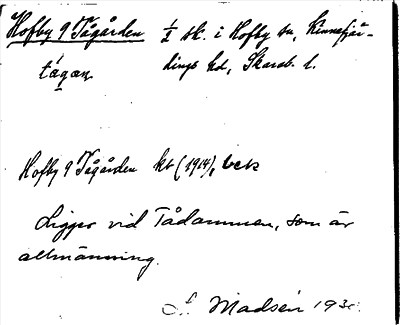 Hofby 9 Tågården ½ sk. i Hofby sn, Kinnefjär-
tågaɲ dings hd, Skarab. l.
Hofby 9 Tågården kb (1914), beck
Ligger vid Tådammen, som är
allmänning.
S. Madsén 193